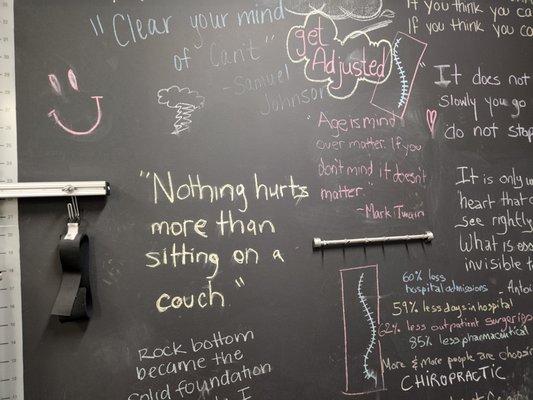 "Clear your mind
of Can't"
-Samuel
Johnson
get
Adjusted
If you think you ca
If you think you ca
It does not
slowly you go
do not stop
"Age is mind
over matter. If you
don't mind it doesn't
matter."
-Mark Twain
"Nothing hurts
more than
sitting on a
couch."
It is only
heart that
see rightly
What is
invisible
60% less
hospital admissions
59% less days in hospital
62% less outpatient surgeries
85% less pharmaceutical
More & more people are
CHIROPRACTIC
Rock bottom
became the
Solid foundation
I